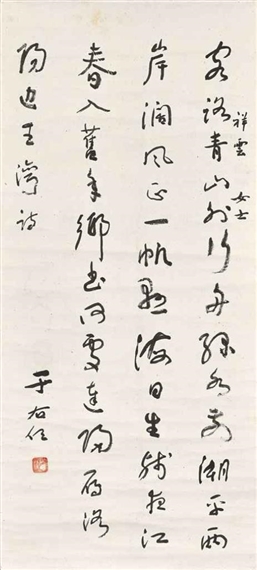 祥雲女士
客路青山外行舟綠水前潮平兩
岸濶風正一帆懸海日生殘夜江
春入舊年鄉書何處達歸雁洛
陽邊王灣詩
于右任